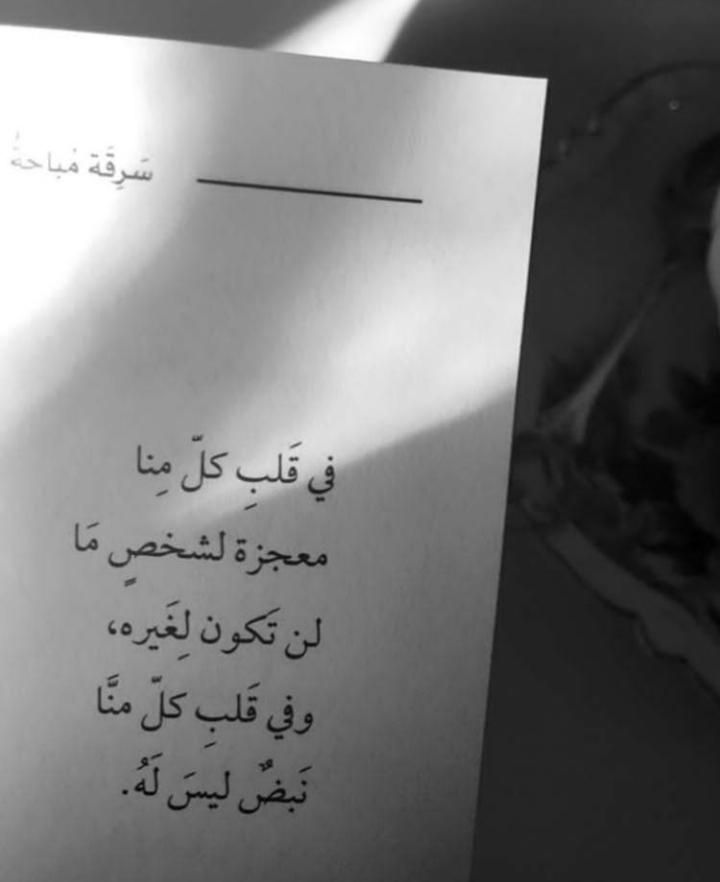 سَرِقَة مُباحةٌ
في قَلبِ كلّ مِنا
معجزة لشخصٍ مَا
لن تَكون لِغَيره،
وفي قَلبِ كلّ منَّا
نَبضٌ ليسَ لَهُ.